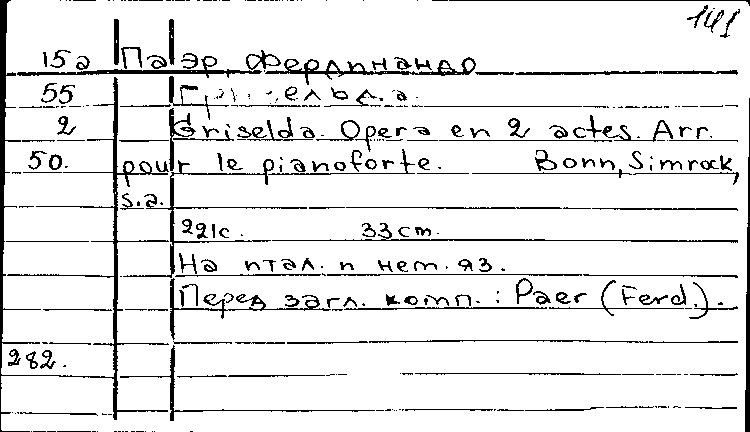 141
15а Паэр, Фердинандо
55 Гризельда.
2 Griselda. Opera en 2 actes. Arr.
50. pour le pianoforte. Bonn, Simrock,
s.a.
221с. 33 cm.
На итал. и нем. яз.
Перед загл. комп.: Paer (Ferd.).
282.